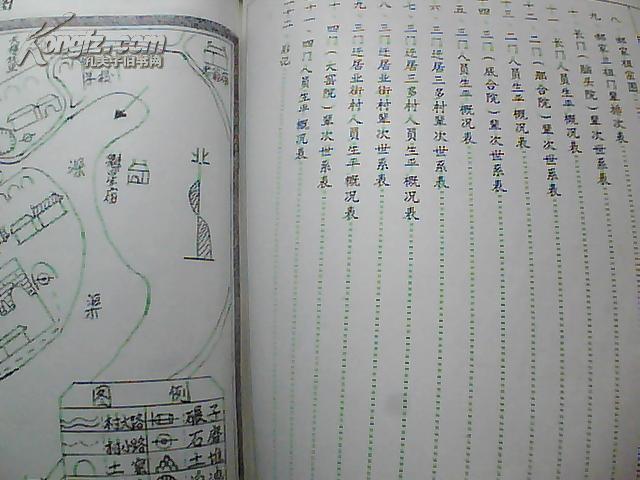 八、郝家祖宅图
九、郝家三祖门辈梯次
十、长门（脑头院）辈次世系表
十一、长门人员生平概况表
十二、二门（那合院）辈次世系表
十三、二门人员生平概况表
十四、三门（底合院）辈次世系表
十五、三门人员生平概况表
十六、三门迁居三多村辈次世系表
十七、三门迁居三多村人员生平概况表
十八、三门迁居业街村辈次世系表
十九、三门迁居业街村人员生平概况表
四门（大窑院）辈次世系表
四门人员生平概况表
后记
Kongfz.com
孔夫子旧书网
北
渠
渠
图例
村大路
碾子
村小路
石磨
土窑
土堆